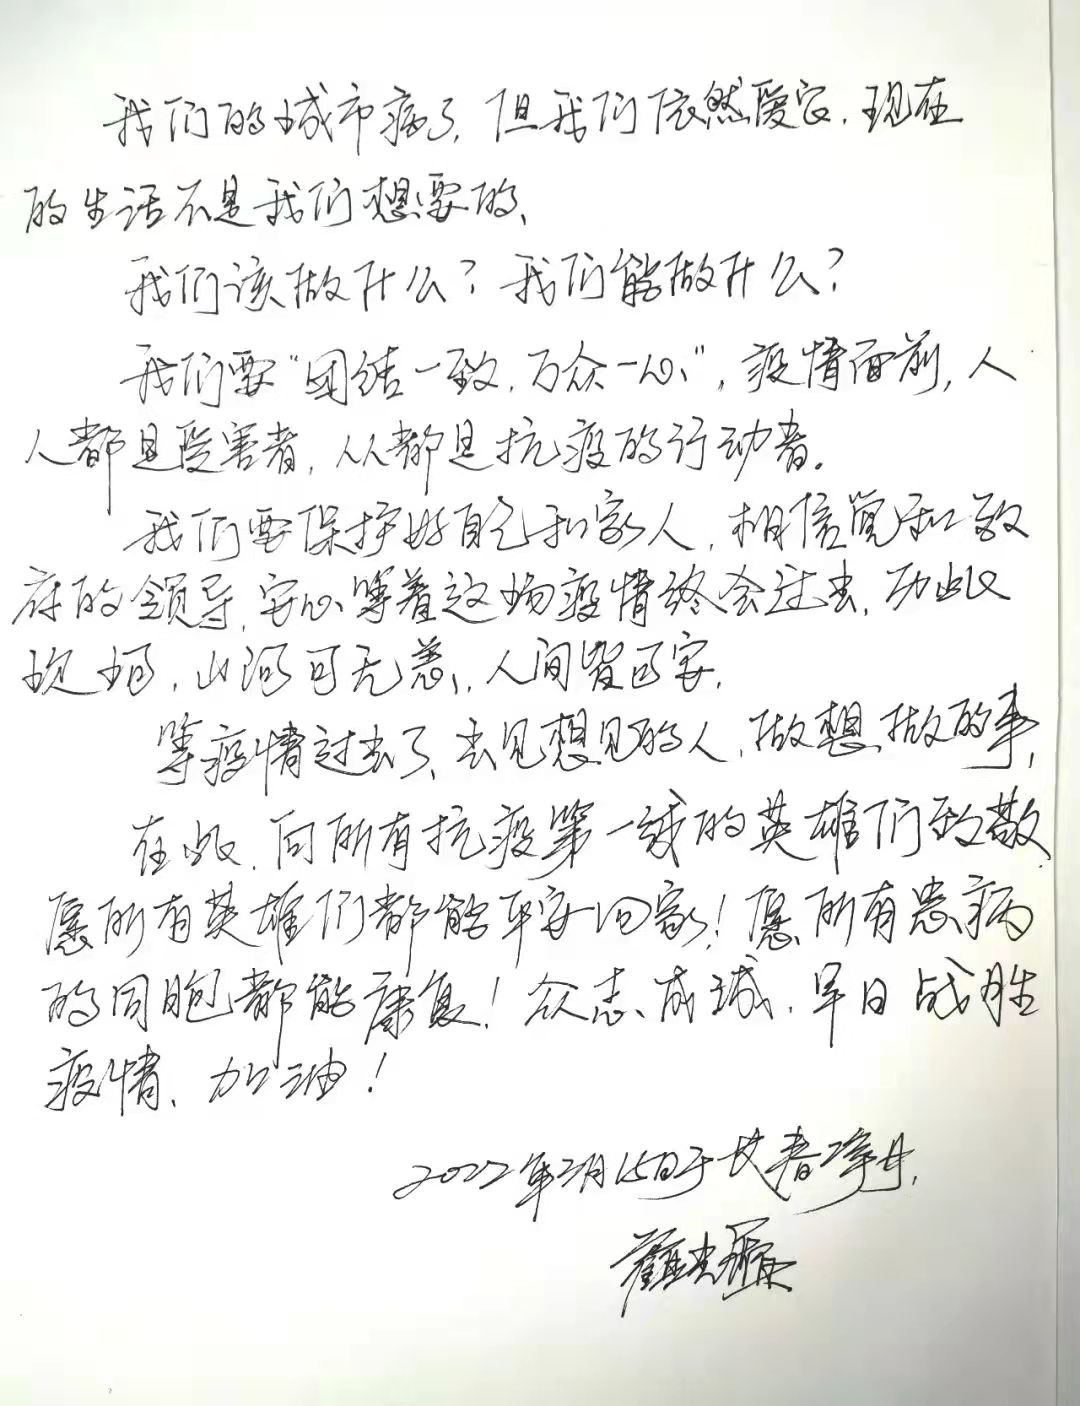 我们的城市病了，但我们依然爱它．现在
的生活不是我们想要的、
我们该做什么？我们能做什么？
我们要“团结一致，万众一心”，疫情面前，人
人都是受害者，人人都是抗疫的行动者。
我们要保护好自己和家人，相信党和政
府的领导，安心等着这场疫情终会过去，历此
坎坷，山河可无恙，人间皆可安．
等疫情过去了、去见想见的人，做想做的事，
在此，向所有抗疫第一线的英雄们致敬．
愿所有英雄们都能平安回家！愿所有患病
的同胞都能康复！众志成城．早日战胜
疫情、加油！
2022年3月15日于长春净月，